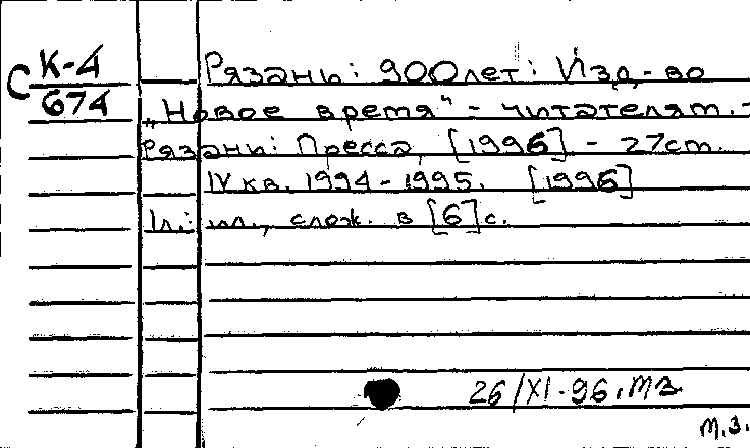 С К-4
674
Рязань: 900 лет: Изд-во
„Новое время" - читателям. -
Рязань: Пресса, [1996] - 27см.
IV кв. 1994-1995. [1996]
1л.: ил., слож. в [6] с.
26/XI-96. МЗ
М.З.